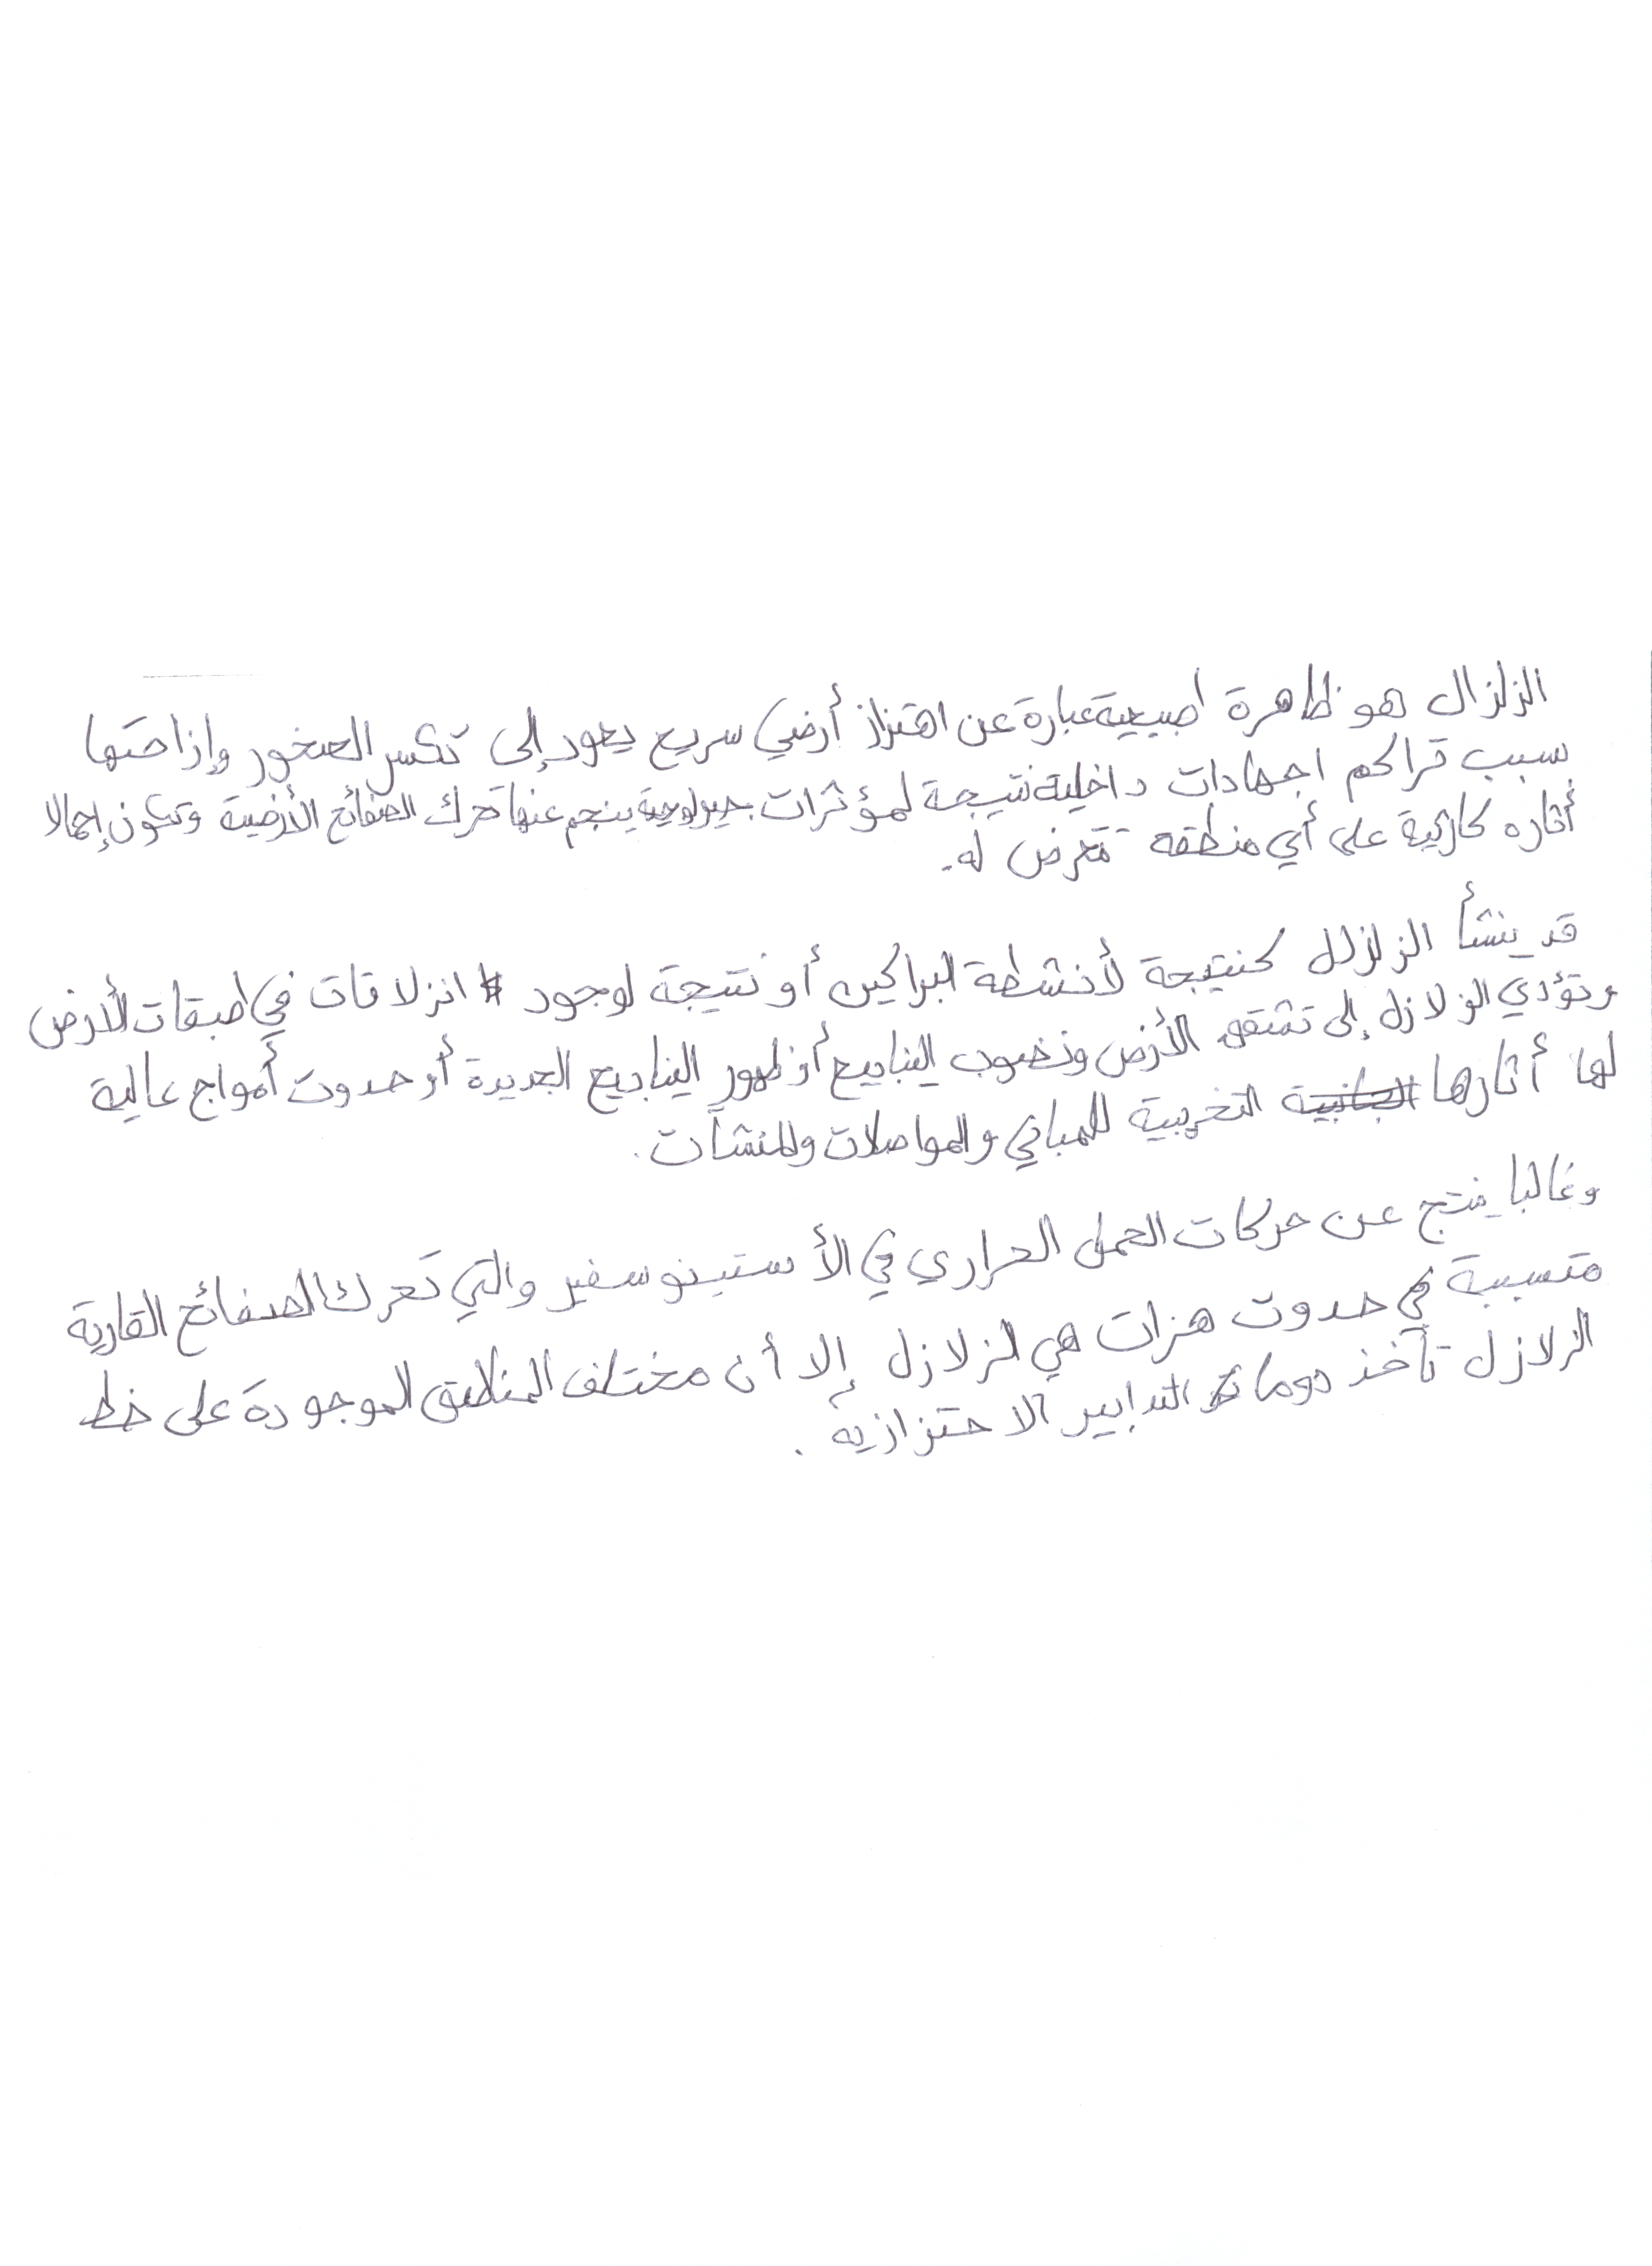 الزلزال هو ظاهرة طبيعية عبارة عن اهتزاز أرضي سريع يعود إلى تكسر الصخور وإزاحتها
بسبب تراكم اجهادات داخلية نتيجة لمؤثرات جيولوجية ينجم عنها تحرك الصفائح الأرضية وتكون إجمالا
أثاره كارثية على أي منطقه تتعرض له.
قد ينشأ الزلزال كنتيجة لأنشطة البراكين أو نتيجة لوجود انزلاقات في طبقات الأرض
وتؤدي الزلازل إلى تشقق الأرض ونضوب الينابيع أو ظهور الينابيع الجديدة أو حدوث أمواج عالية
لها أثارها التخريبية للمباني والمواصلات والمنشأت.
وغالبا ينتج عن حركات الحمل الحراري في الأستينوسفير والتي تحرك الصفائح القارية
متسببة في حدوث هزات هي الزلازل إلا أن مختلف المناطق الموجودة على خط
الزلازل تأخذ دوما التدابير الاحتزازية.